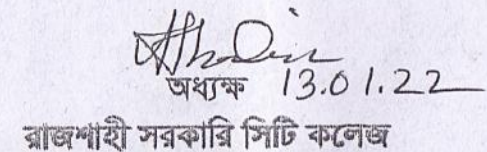 অধ্যক্ষ 13.01.22
রাজশাহী সরকারি সিটি কলেজ